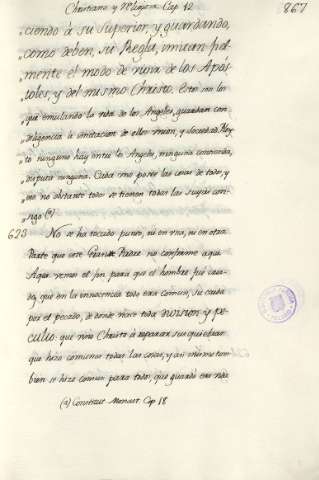 Christiano y Religioso Cap 12
867
ciendo à su Superior, y guardando,
como deben, su Regla, imitan fiel-
mente el modo de vivir de los Após-
toles, y del mismo Christo. Estos son los
que emulando la vida de los Angeles, guardan con
diligencia la imitacion de ellos
ninguno hay entre los Angeles, ninguna contienda,
disputa ninguna. Cada uno posee las cosas de todos, y
no obstante todos se tienen todas las suyas con-
sigo (a)
623 No se ha tocado punto, ni en una, ni en otra
Parte que este Grande Padre no confirme aqui.
Aqui vemos el fin para que el hombre fue cria-
do, que en la innocencia todo era comun, su caida
por el pecado, de donde nace toda division, y pe-
culio: que vino Christo à reparar
que hizo comunes todas las cosas, y asi mismo tam-
bien se hizo comun para todos, que guardó esta vida
(a) Constitut Monast. Cap 18